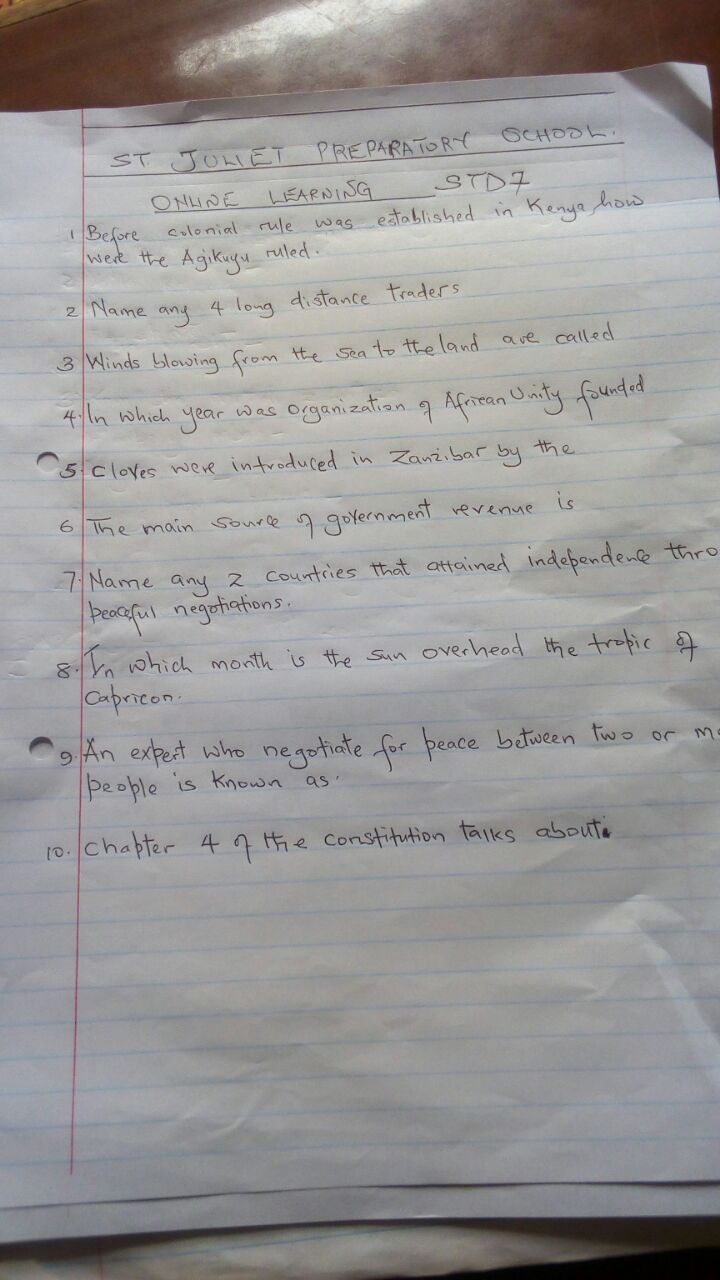 ST JULIET PREPARATORY SCHOOL.
ONLINE LEARNING STD7
1 Before colonial rule was established in Kenya, how
were the Agikuyu ruled.
2 Name any 4 long distance traders
3 Winds blowing from the sea to the land are called
4. In which year was organization of African Unity founded
5. Cloves were introduced in Zanzibar by the
6 The main source of government revenue is
7. Name any 2 countries that attained independence thro
peaceful negotiations.
8. In which month is the sun overhead the tropic of
Capricon.
9. An expert who negotiate for peace between two or mo
people is known as.
10. Chapter 4 of the constitution talks about.